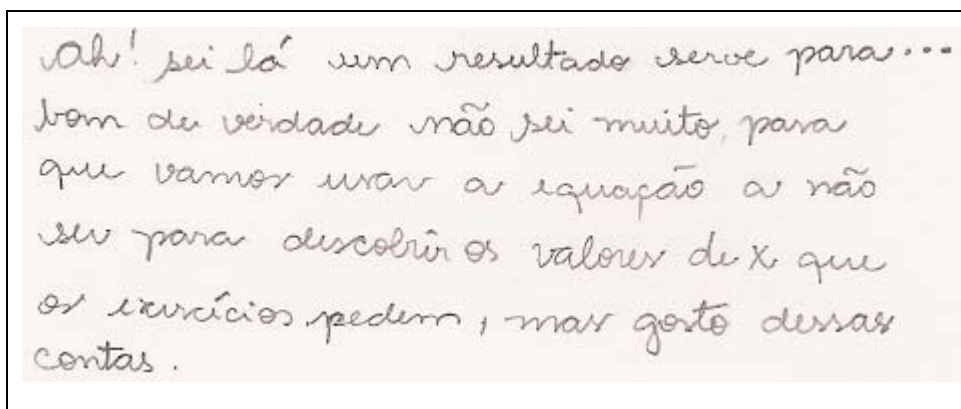 Ah! sei lá um resultado serve para...
bom de verdade não sei muito, para
que vamos usar a equação a não
ser para descobrir os valores de x que
os exercícios pedem, mas gosto dessas
contas.